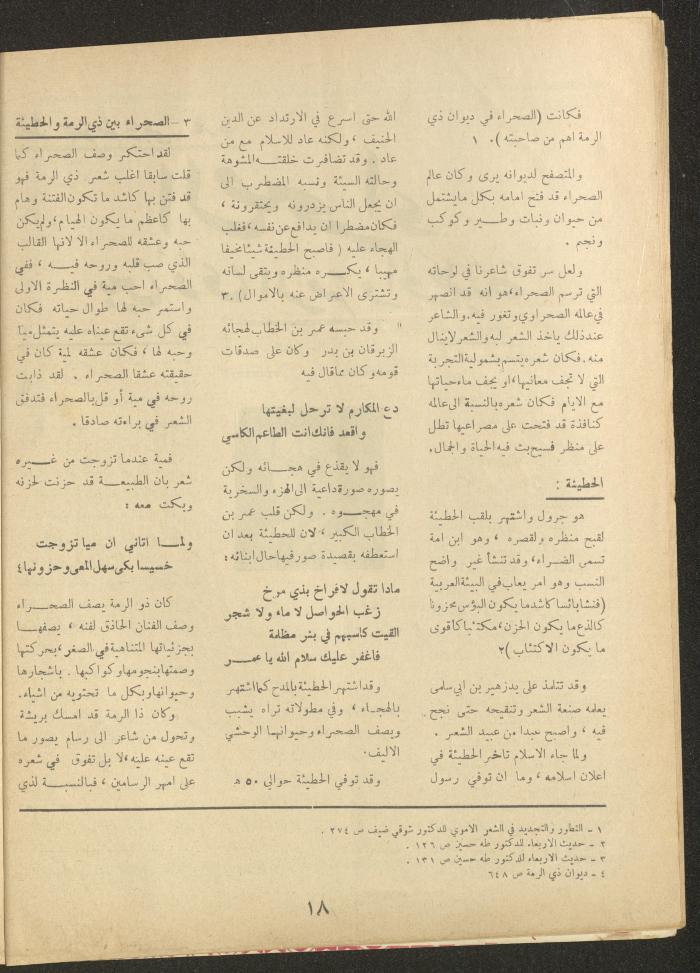 فكانت (الصحراء في ديوان ذي
الرمة اهم من صاحبته ). ١
والمتصفح لديوانه يرى وكان عالم
الصحراء قد فتح امامه بكل مايشتمل
من حيوان ونبات وطـــير وكوكب
ونجم .
ولعل سر تفوق شاعرنا في لوحاته
التي ترسم الصحراء ، هو انه قد انصهر
في عالمه الصحراوي وتغور فيه. والشاعر
عندذلك ياخذ الشعر لبه والشعر لاينال
منه. فكان شعره يتسم بشمولية التجربة
التي لا تجف معانيها ، او يجف ماء حياتها
مع الايام فكان شعره بالنسبة الى عالمه
كنافذة قد فتحت على مصراعيها تطل
على منظر فسيح بث فيه الحياة والجمال.
الحطيئة :
هو جرول واشتهر بلقب الحطيئة
لقبح منظره ولقصره ، وهو ابن امة
تسمى الضراء ، وقد تنشأ غير واضح
النسب وهو امر يعاب في البيئة العربية
(فنشا بائسا كاشد ما يكون البؤس محزونا
كالذع ما يكون الحزن ، مكتئبا كاقوى
ما يكون الاكتئاب )٢
وقد تتلمذ على يد زهير بن ابي سلمى
يعلمه صنعة الشعر وتنقيحه حتى نجح
فيه ، واصبح عبدا من عبيد الشعر .
ولما جاء الاسلام تاخر الحطيئة في
اعلان اسلامه ، وما ان توفي رسول
الله حتى اسرع في الارتداد عن الدين
الحنيف ، ولكنه عاد للاسلام مع من
عاد . وقد تضافرت خلقتـــه المشوهة
وحالته السيئة ونسبه المضطرب الى
ان يجعل الناس يزدرونه ويحتقرونه ،
فكان مضطرا ان يدافع عن نفسه ، فغلب
الهجاء عليه ( فاصبح الحطيئة شيئا مخيفا
مهيبا ، يكـــره منظره ويتقى لسانه
وتشترى الاعراض عنه بالاموال ) .٣
" وقد حبسه عمر بن الخطاب لهجائه
الزبرقان بن بدر وكان على صدقات
قومه وكان مما قال فيه
دع المكارم لا ترحل لبغيتها
واقعد فانك انت الطاعم الكاسي
فهو لا يقذع في هجـــائه ولكن
يصوره صورة داعية الى الهزء والسخرية
في مهجــوه . ولكن قلب عمر بن
الخطاب الكبير ، لان للحطيئة بعد ان
استعطفه بقصيدة صور فيها حال ابنائه :
ماذا تقول لافراخ بذي مرخ
زغب الحواصل لا ماء ولا شجر
القيت كاسبهم في بئر مظلمة
فاغفر عليك سلام الله يا عمـــر
وقد اشتهر الحطيئة بالمدح كما اشتهر
بالهجـاء ، وفي مطولاته تراه يشبب
ويصف الصحراء وحيوانها الوحشي
الاليف.
وقد توفي الحطيئة حوالي ٥٠ هـ
٣ – الصحراء بين ذي الرمة والحطيئة
لقد احتكر وصف الصحراء كما
قلت سابقا اغلب شعر ذي الرمة فهو
قد فتن بها كاشد ما تكون الفتنة وهام
بها كاعظم ما يكون الهيام ، ولم يكن
حبه وعشقه للصحراء الا لانها القالب
الذي صب قلبه وروحه فيـــه ، ففي
الصحراء احب مية في النظرة الاولى
واستمر حبه لها طوال حياته فكان
في كل شيء تقع عيناه عليه يتمثل ميا
وحبه لها ، فكان عشقه لمية كان في
حقيقته عشقا الصحراء . لقد ذابت
روحه في مية أو قل بالصحراء فتدفق
الشعر في براءته صادقا .
فمية عندما تزوجت من غـــيره
شعر بان الطبيعـــة قد حزنت لحزنه
وبكت معه :
ولمـــا اتاني ان ميا تزوجت
خسيسا بكى سهل المعى وحزونها ٤
كان ذو الرمة يصف الصحـــراء
وصف الفنان الحاذق لفنه ، يصفهـــا
بجزئياتها المتناهية في الصغر ، بحركتها
وصمتها بنجومها وكواكبها . باشجارها
وحيوانها وبكل ما تحتويه من اشياء.
وكان ذا الرمة قد امسك بريشة
وتحول من شاعر الى رسام يصور ما
تقع عينه عليه ، لا بل تفوق في شعره
على امهر الرسامين ، فبالنسبـــة لذي
١ – التطور والتجديد في الشعر الاموي للدكتور شوقي ضيف ص ٢٧٤ .
٢ – حديث الاربعاء للدكتور طه حسين ص ١٢٦ .
٣ – حديث الاربعاء للدكتور طه حسين ص ١٣١ .
٤ – ديوان ذي الرمة ص ٦٤٨
١٨